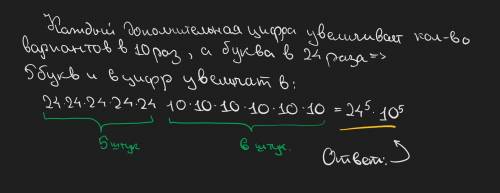 Каждый дополнительная цифра увеличивает кол-во
вариантов в 10 раз, а буква в 24 раза =>
5 букв и 6 цифр увеличат в:
24·24·24·24·24 10·10·10·10·10·10 = 24⁵·10⁵
5 штук 6 штук.
Ответ.